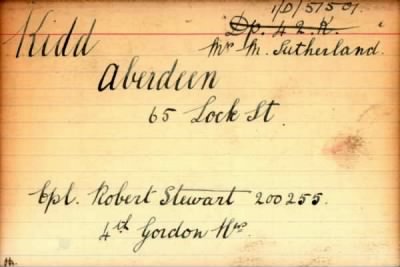 1/D/5/501.
Kidd "Dp. 42.K. "
Mrs M. Sutherland.
Aberdeen
65 Lock St.
Cpl. Robert Stewart 200255.
4th Gordon Hrs.